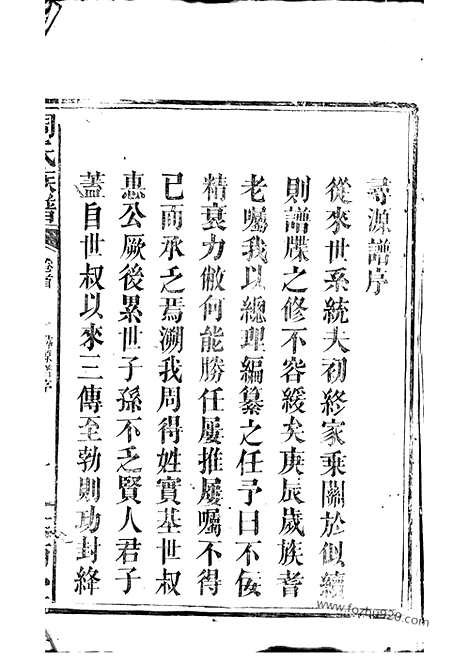 尋源譜序
從來世系統夫初終家乘關於似續
則譜牒之修不容緩矣庚辰歲族耆
老囑我以總理編纂之任予曰不佞
精衰力倦何能勝任屢推屢囑不得
已而承乏焉溯我周得姓實基世叔
惠公厥後累世子孫不乏賢人君子
蓋自世叔以來三傳至勃則功封絳
周氏族譜
卷首
尋源譜序
www.fozhu920.com